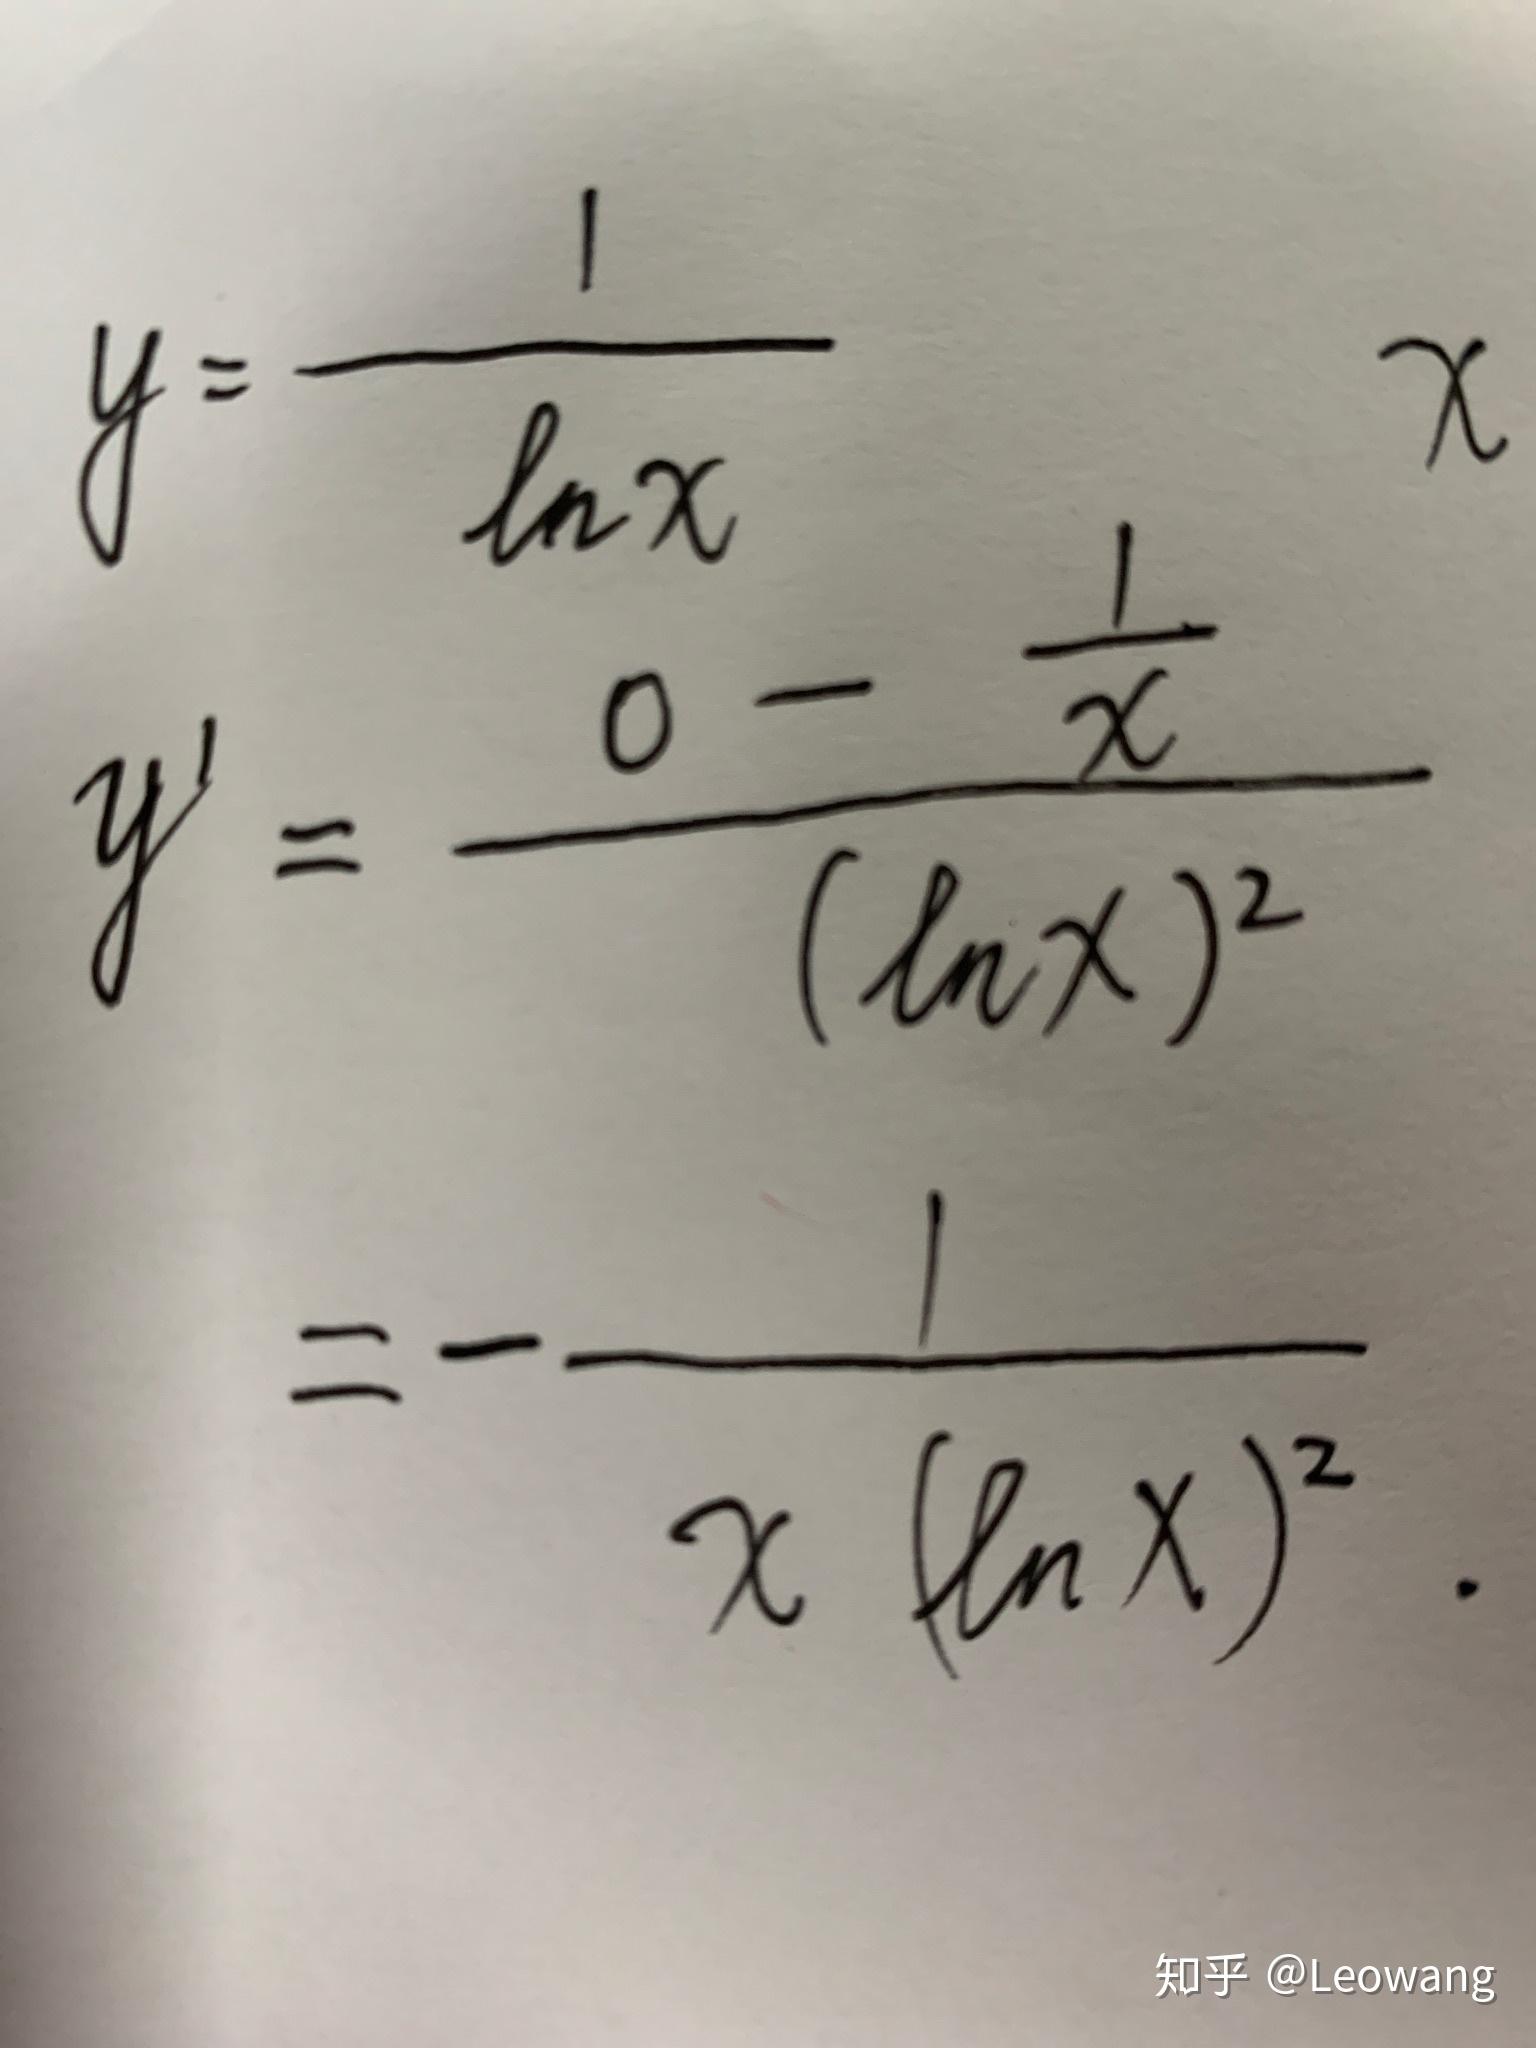 y = 1/ln x x
y' = (0 - 1/x)/(ln x)²
= - 1/x (ln x)² .
知乎 @Leowang